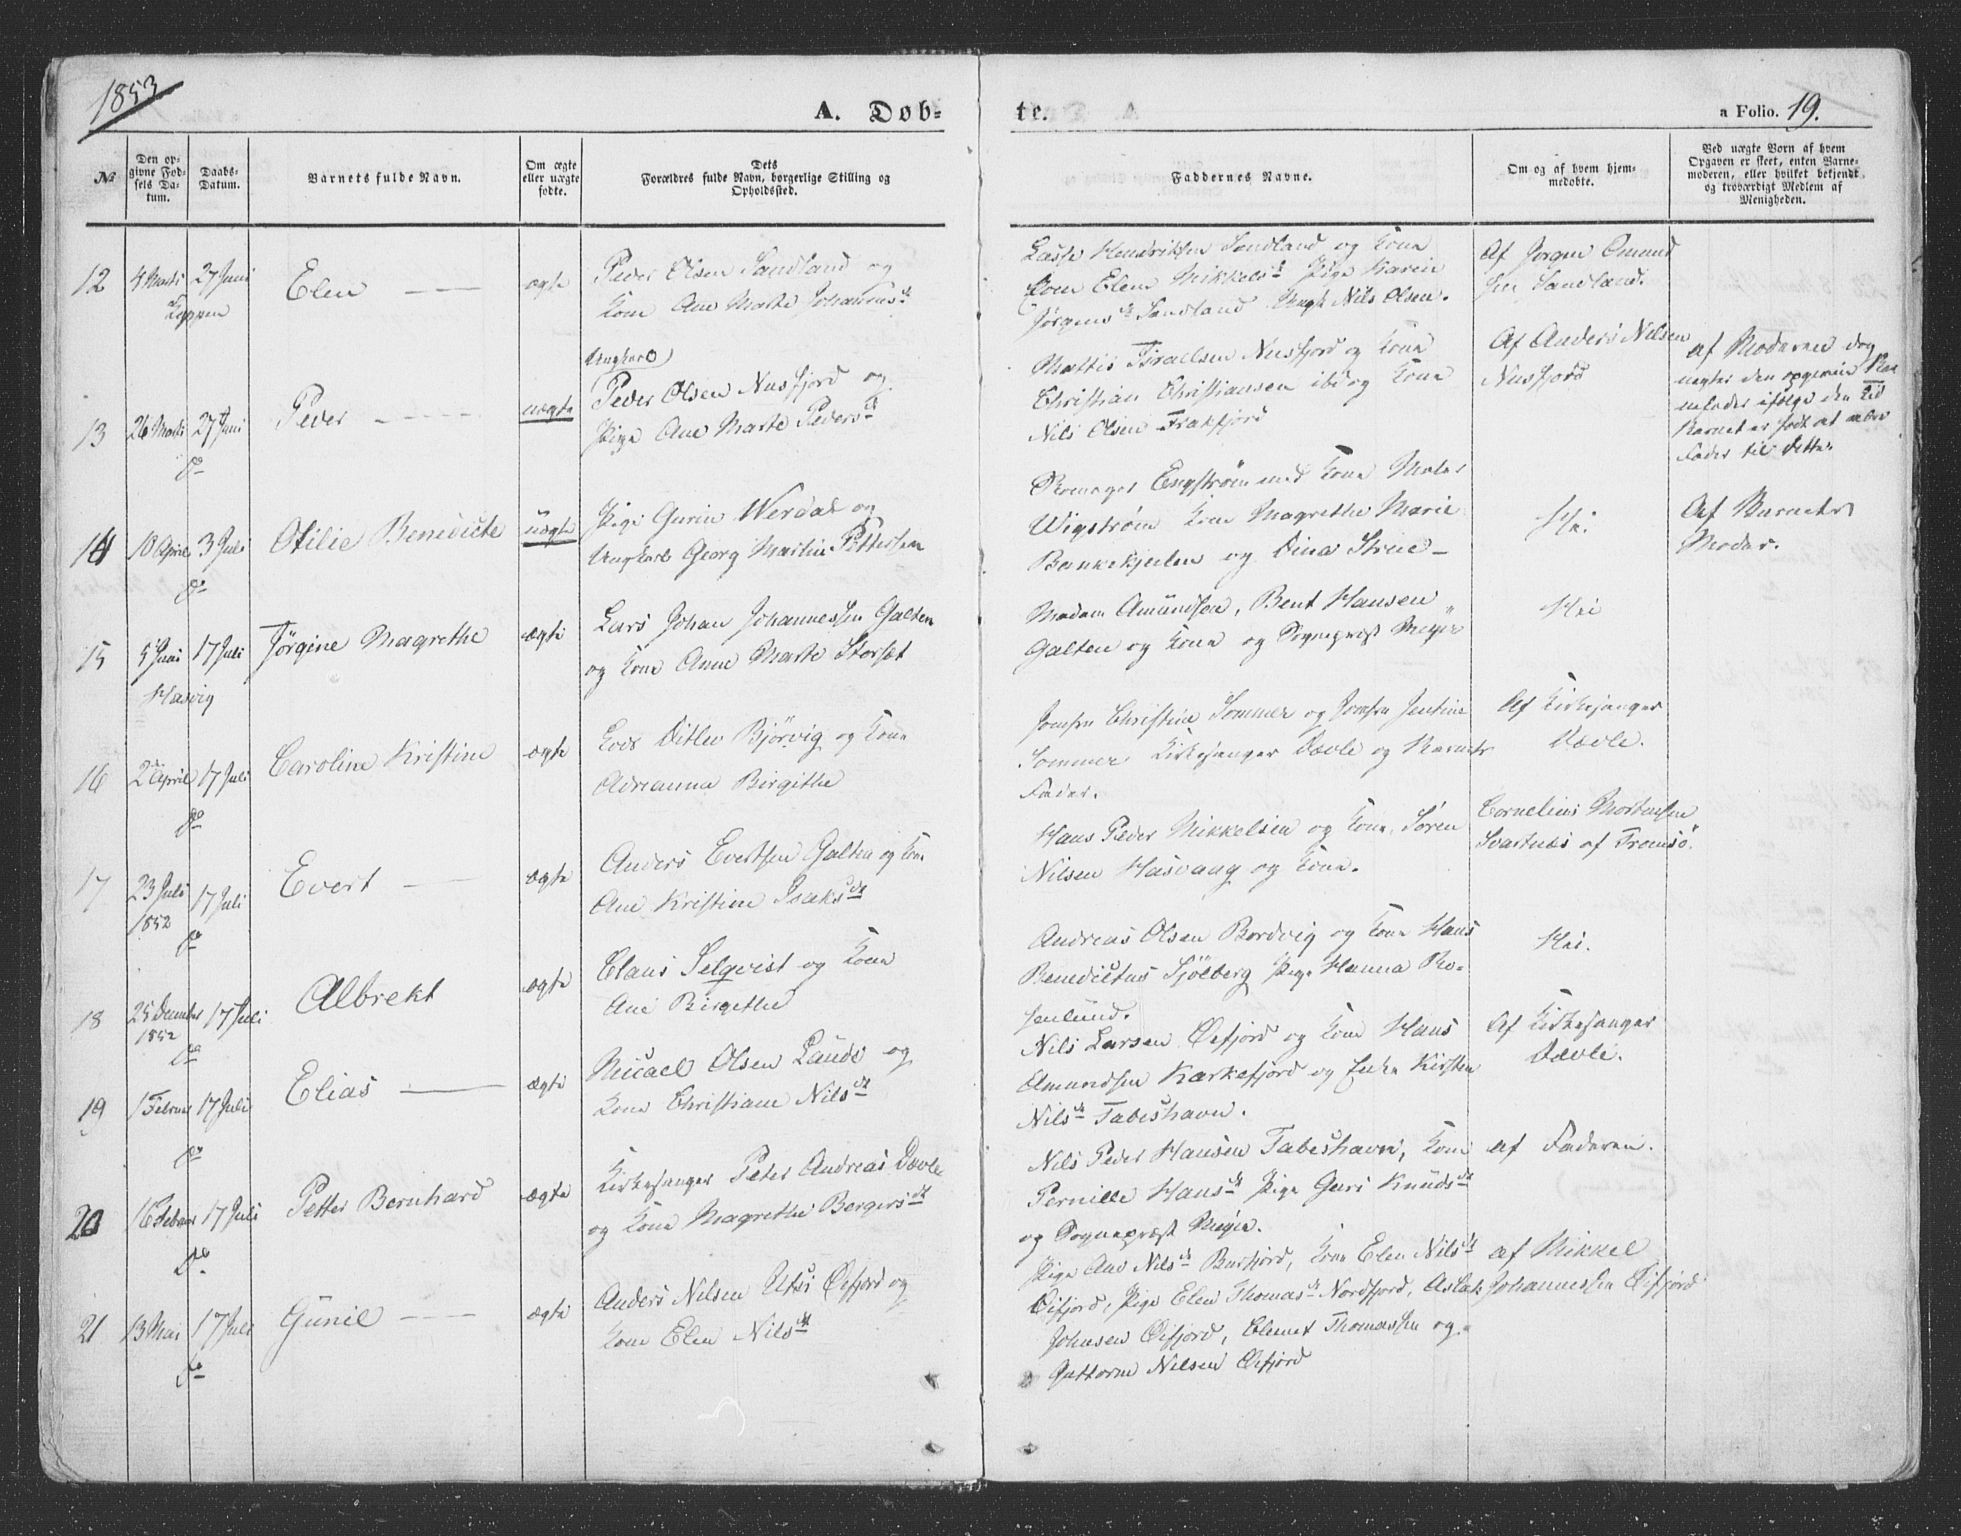 1853
A. Døb-
te.
a Folio. 19.
№
Den op-
givne Fød-
sels Da-
tum.
Daabs-
Datum.
Barnets fulde Navn.
Om ægte
eller uægte
fødte.
Dets
Forældres fulde Navn, borgerlige Stilling og
Opholdssted.
Faddernes Navne.
Om og af hvem hjem-
medøbte.
Ved uægte Børn af hvem
Opgaven er skeet, enten Barne-
moderen, eller hvilket bekjendt
og troværdigt Medlem af
Menigheden.
12
4 Marts
27 Juni
Loppen
Elen
ægte
Peder Olsen Sandland og
Kone Ane Marte Johannesdt
Lasse Hendriksen Sandland og Kone
Kone Elen Mikkelsdt Pige Karen
Jørgensdt Sandland Nils Olsen.
Af Jørgen Omund
sen Sandland.
13
26 Marts
27 Juni
do
Peder
uægte
Ungkarl
Peder Olsen Nusfjord og
Pige Ane Marte Pedersdt
Mattis Israelsen Nusfjord og Kone
Christian Christiansen ibd og Kone
Nils Olsen Frakfjord
Af Anders Nilsen
Nusfjord
af Moderen dog
negter den opgivne Bar
nefader ifølge den Tid
Barnet er født at være
Fader til dette.
14
10 April
3 Juli
do
Otilie Benedicte
uægte
Pige Gurin Werdal og
Ungkarl Georg Martin Pettersen
Engstrøm med Kone
Wigstrøm Kone Magrethe Marie
Bankekjeilen og Dina Strue
Nei.
Af Barnets
Moder.
15
5 Juni
17 Juli
Hasvig
Jørgine Magrethe
ægte
Lars Johan Johannessen Galten
og Kone Anne Marte Storset
Madam Amundsen, Bent Hansen
Galten og Kone og Sognepræst Meyer
Nei
16
2 April
17 Juli
do
Caroline Kristine
ægte
Lods Ditlev Bjørvig og Kone
Adrianna Birgithe
Jomfru Christine Sommer og Jomfru Jentine
Sommer Kirkesanger Dævle og Barnets
Fader.
Af Kirkesanger
Dævle.
17
23 Juli
1852
17 Juli
do
Evert
ægte
Anders Evertsen Galten og Kone
Ane Kristine Isaksdt
Hans Peder Mikkelsen og Kone, Søren
Nilsen Hasvaag og Kone.
Cornelius Mortensen
Svartnæs af Tromsø.
18
25 December
1852
17 Juli
do
Albrekt
ægte
Claus Selqvist og Kone
Ane Birgethe
Andreas Olsen Bordvig og Kone Hans
Benedictus Sjølberg Pige Hanna Ro-
senlund.
Nei.
19
1 Februar
17 Juli
do
Elias
ægte
Micael Olsen Lande og
Kone Christiane Nilsdt
Nils Larsen Øxfjord og Kone Hans
Amundsen Karkefjord og Enke Kirsten
Nilsdt Fabeshavn.
Af Kirkesanger
Dævle.
20
16 Februar
17 Juli
do
Petter Bernhard
ægte
Kirkesanger Peter Andreas Dævle
og Kone Magrethe Bergersdt
Nils Peder Hansen Fabeshavn, Kone
Pernille Hansdt Pige Guri Knudsdt
og Sognepræst Meyer.
af Faderen.
21
13 Mai
17 Juli
do
Gunil
ægte
Anders Nilsen Utsi Øxfjord og
Kone Elen Nilsdt
Pige Ane Nilsdt Burfjord, Kone Elen Nilsdt
Øxfjord, Pige Elen Thomasdt Nordfjord, Aslak
Johnsen Øxfjord, Clemet Thomassen og
Guttorm Nilsen Øxfjord
af Mikkel
Johannessen Øxfjord